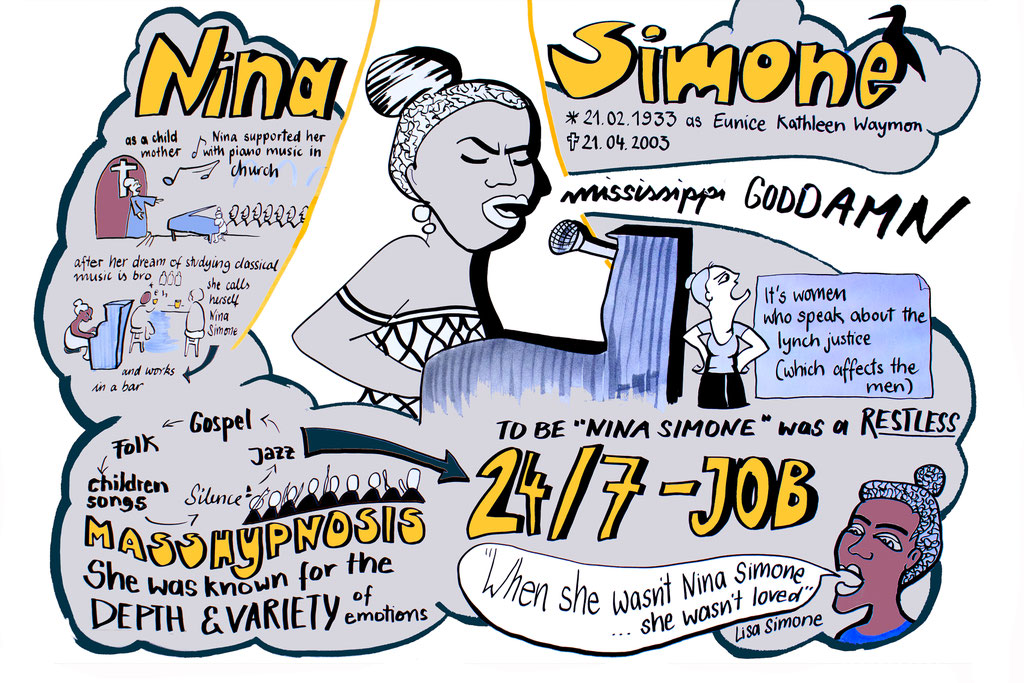 Nina
Simone
* 21.02.1933 as Eunice Kathleen Waymon
✝ 21.04.2003
as a child Nina supported her
mother with piano music in
church
after her dream of studying classical
music is bro
she calls
herself
Nina
Simone
and works
in a bar
mississippi GODDAMN
It's women
who speak about the
lynch justice
(which affects the
men)
Gospel
Folk
Jazz
children
songs
Silence
MASSHYPNOSIS
She was known for the
DEPTH & VARIETY of
emotions
TO BE "NINA SIMONE" was a RESTLESS
24/7-JOB
"When she wasn't Nina Simone
... she wasn't loved"
Lisa Simone